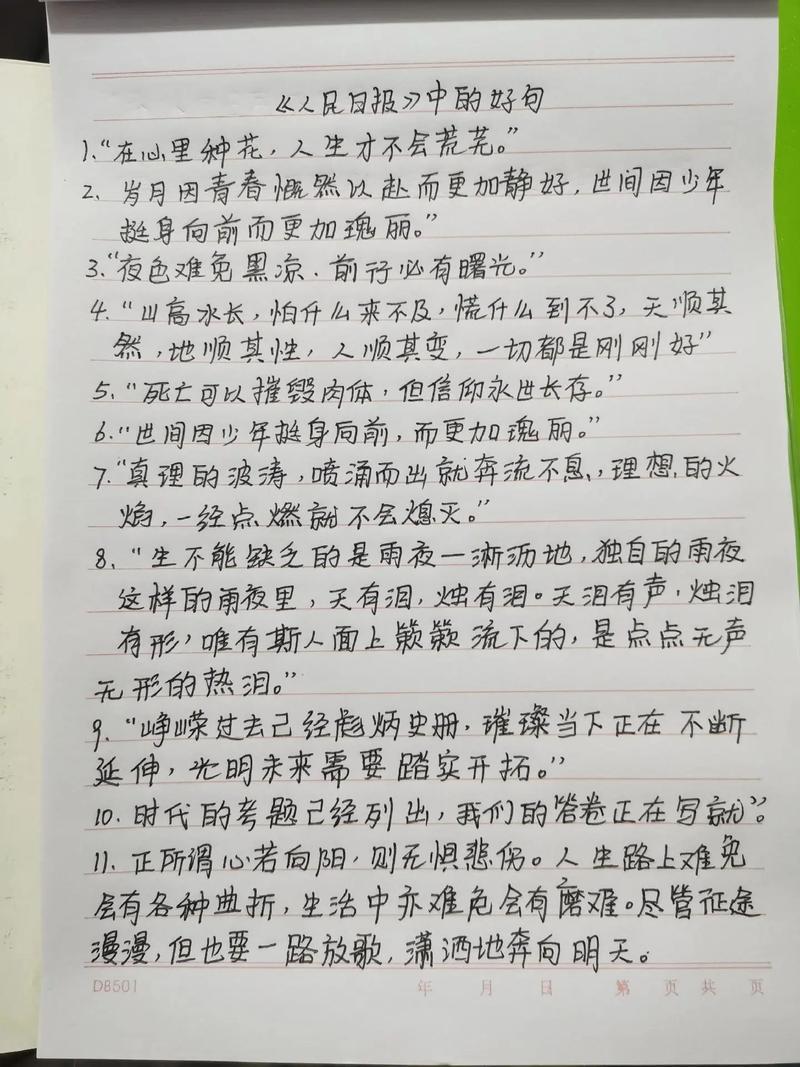 《人民日报》中的好句
1.“在心里种花，人生才不会荒芜。”
2. 岁月因青春慨然以赴而更加静好，世间因少年
挺身向前而更加瑰丽。”
3.“夜色难免黑凉，前行必有曙光。”
4.“山高水长，怕什么来不及，慌什么到不了，天顺其
然，地顺其性，人顺其变，一切都是刚刚好”
5.“死亡可以摧毁肉体，但信仰永世长存。”
6.“世间因少年挺身向前，而更加瑰丽。”
7.“真理的波涛，喷涌而出就奔流不息，理想的火
焰，一经点燃就不会熄灭。”
8.“生不能缺乏的是雨夜一淅沥地，独自的雨夜
这样的雨夜里，天有泪，烛有泪。天泪有声，烛泪
有形，唯有斯人面上簌簌流下的，是点点无声
无形的热泪。”
9.“峥嵘过去已经彪炳史册，璀璨当下正在不断
延伸，光明未来需要踏实开拓。”
10.时代的考题已经列出，我们的答卷正在写就”。
11.正所谓心若向阳，则无惧悲伤。人生路上难免
会有各种曲折，生活中亦难免会有磨难。尽管征途
漫漫，但也要一路放歌，潇洒地奔向明天。
DB501 年 月 日 第 页 共 页